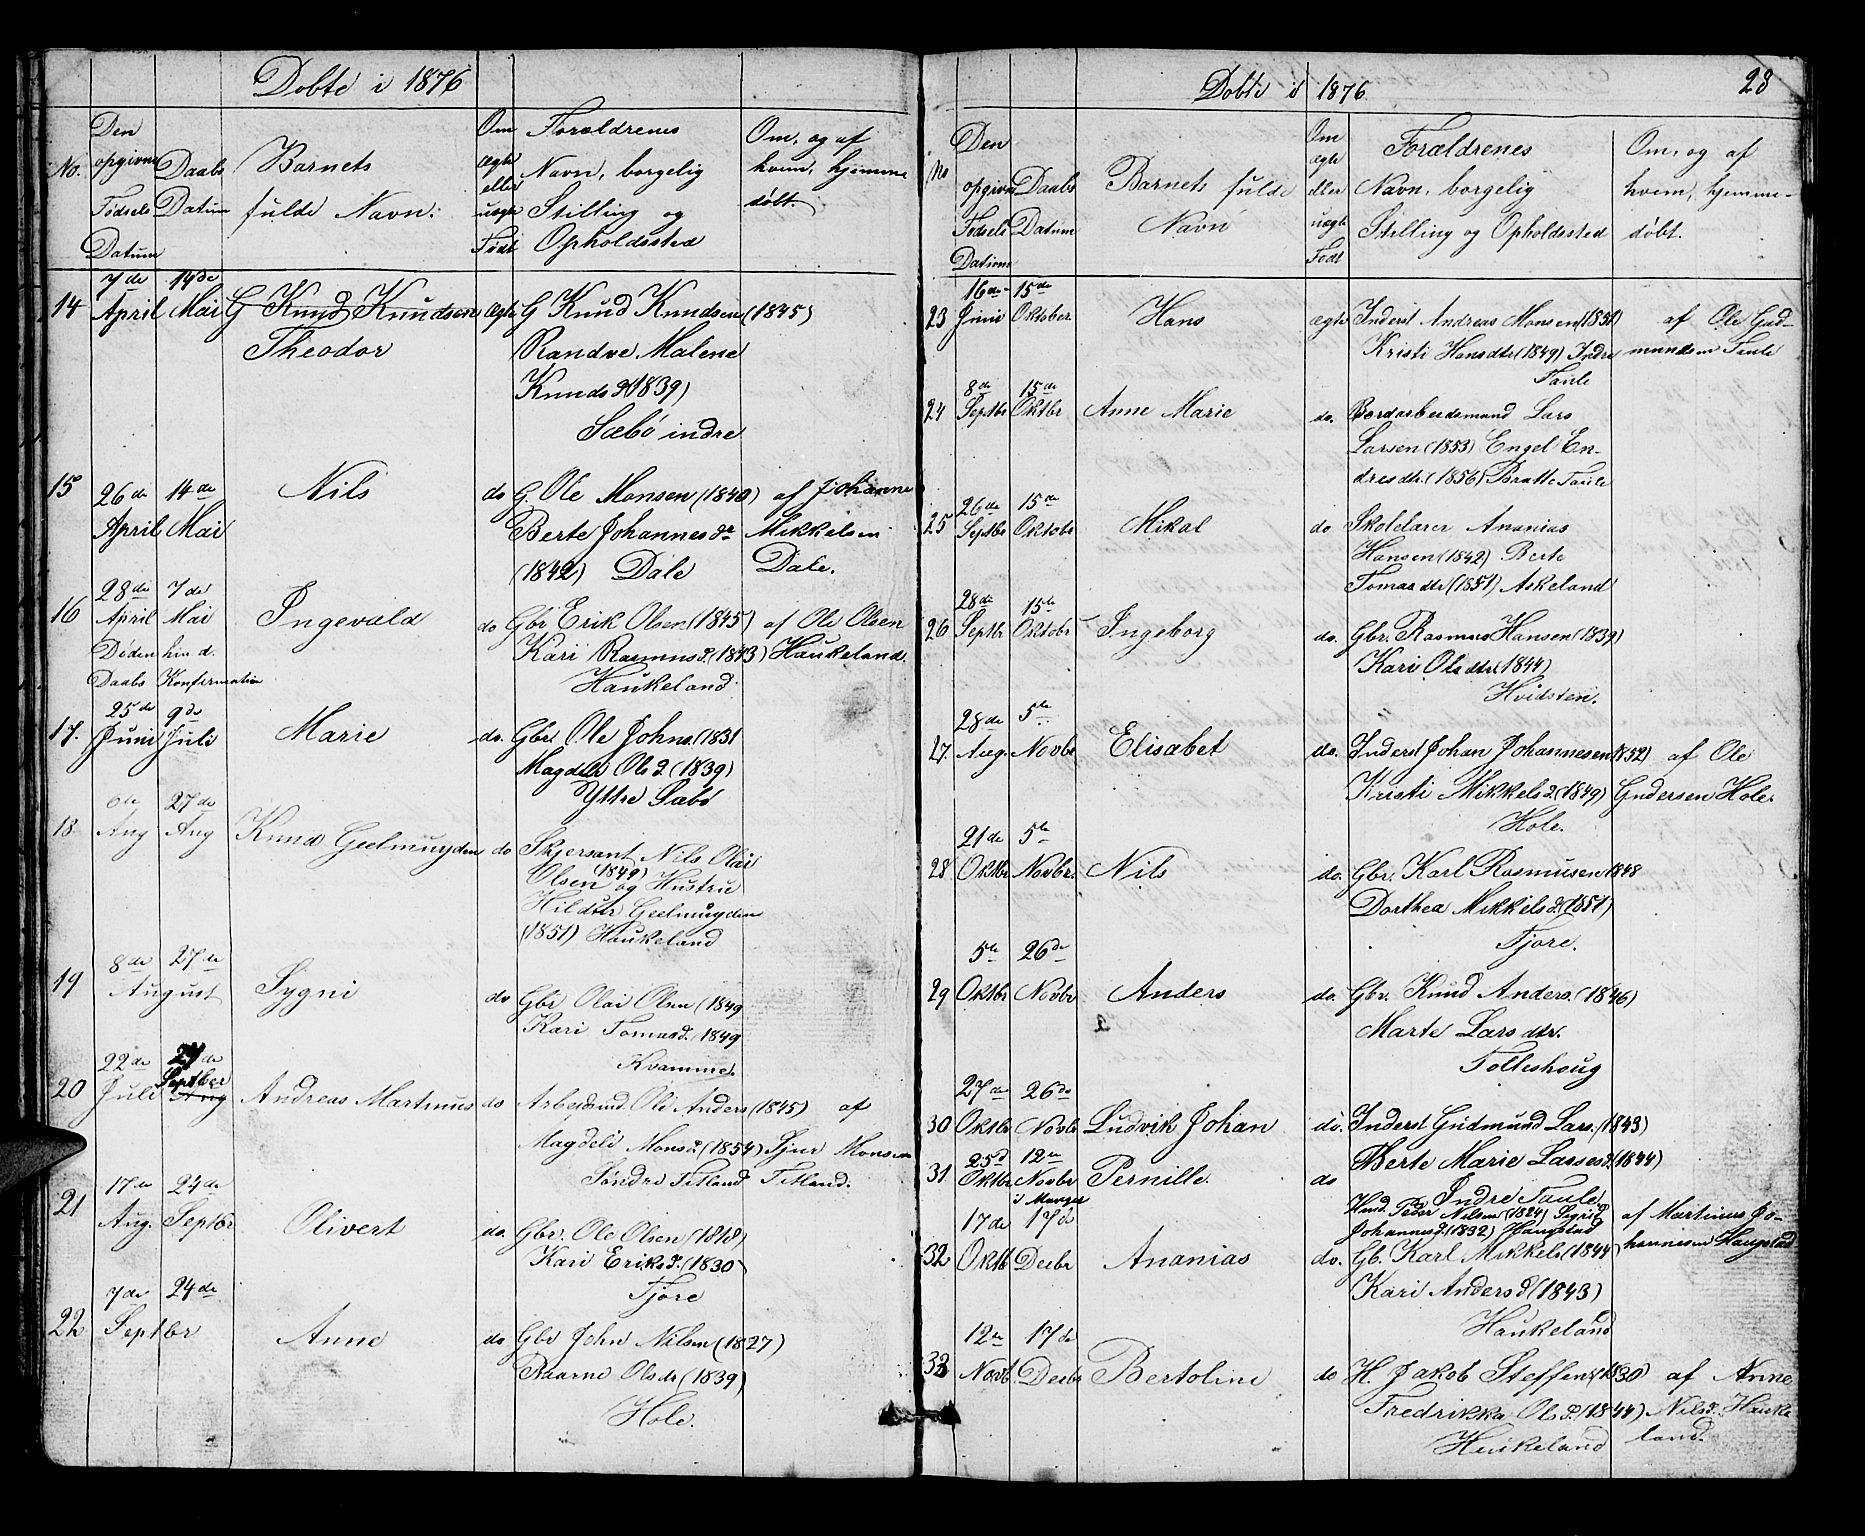 Døbte i 1876
No.
Den opgivne Fødsels Datum
Daabs Datum
Barnets fulde Navn.
Om ægte eller uægte Født
Forældrenes Navn, borgelig Stilling og Opholdssted
Om, og af hvem, hjemme døbt.
14 7de April 14de Mai G Knud Knudsen Theodor ægte G Knud Knudsen (1845)
Randve Malene
Knudsd (1839)
Sæbö indre
15 26de April 14de Mai Nils do G. Ole Monsen (1840) af Johanne
Berte Johannesdr Mikkelsen
(1842) Dale Dale.
16 28de April 7de Mai Ingevald do Gbr Erik Olsen (1845) af Ole Olsen
Kari Rasmusd. (1843) Haukeland.
Haukeland
Døden hin d.
Daabs Konfirmation
17. 25de Juni 9de Juli Marie do. Gbr. Ole Johns. (1831
Magdeli Olsd (1839)
Yttre Sæbö
18 6te Aug 27de Aug Knud Geelmuyden do Skjersant Nils Olai
Olsen (1849) og Hustru
Hildur Geelmuyden
(1851) Haukeland
19 8de 27de August Sygni do Gbr Olai Olsen (1849
Kari Tomasd. 1849
Kvamme.
20 22de Juli 24de Septber Aug Andreas Martinus do Arbeidsmd. Ole Anders (1845) af
Magdeli Monsd. (1854) Sjur Monsen
Søndre Titland Titland.
21 17de Aug. 24de Septbr Olivert do. Gbr. Ole Olsen (1818)
Kari Eriksd. (1830)
Fjøre
22 7de 24de Septbr Anne do Gbr John Nilsen (1827)
Raarne Olsdr (1839)
Hole.
Døbte i 1876
28
No
Den opgivne Fødsels Datum
Daabs Datum
Barnets fulde Navn
Om ægte eller uægte Født
Forældrenes Navn, borgelig Stilling og Opholdssted
Om, og af hvem, hjemmedøbt.
23 16de Juni 15de Oktober Hans ægte Inderst Andreas Monsen (1851) af Ole Gud-
Kristi Hansdtr (1849) Indre mundsen Taule
Taule
24 8de Septbr 15de Oktbr Anne Marie do. Bordarbeidsmand Lars
Larsen (1853) Engel En-
dresdtr. (1856) Bratte Taule
25 26de Septbr 15de Oktobr Mikal do Skolelærer Ananias
Hansen (1842) Berte
Tomasdtr (1851) Askeland
26 28de Septbr 15de Oktobr Ingeborg do. Gbr. Rasmus Hansen (1839)
Kari Olsdtr. (1844)
Hvidsten.
27. 28de Aug. 5te Novbr Elisabet do. Inderst Johan Johannesen (1852) af Ole
Kristi Mikkelsd (1849) Gudersen Hole.
Hole.
28 21de Oktbr 5te Novbr. Nils do. Gbr. Karl Rasmusen 1848
Dorthea Mikkelsd. (1851)
Fjøre.
29 5te Oktbr 26de Novbr Anders do. Gbr. Knud Anders. (1846)
Marte Larsdtr.
Tolleshoug
30 27de Oktbr 26de Novbr Ludvik Johan do. Inderst Gudmund Lars. (1843)
Berte Marie Lassesd. (1844)
Indre Taule
31 25d Oktbr 12te Novbr i Manger Pernille. do Husd. Peder Nilsen (1824) Sigrid af Martinus Jo-
Johannesd. (1832) Haugstad hannesen Haugstad
32 17de Oktb 17de Decbr Ananias do. Gb. Karl Mikkels (1844)
Kari Andersd (1843)
Haukeland
33 12te Novb. 17de Decbr Bertoline do H. Jakob Steffens. (1830) af Anne
Fredrikka Olsd. (1844) Nilsd. Hauke
Haukeland land.